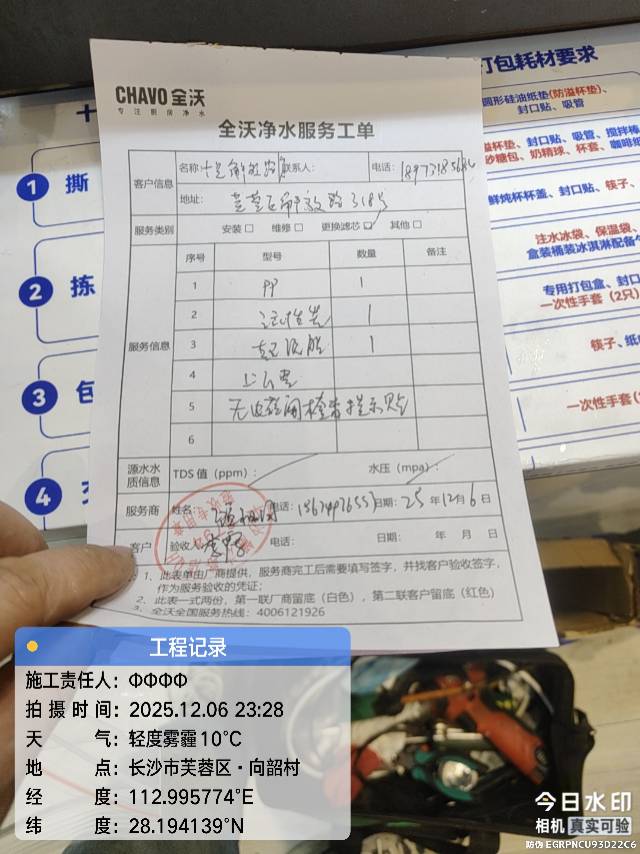 CHAVO 全沃
专注厨房净水
全沃净水服务工单
客户信息
名称:
联系人:
电话:
地址: 芙蓉区解放路318号
服务类别
安装□ 维修□ 更换滤芯☑ 其他□
服务信息
序号 型号 数量 备注
1 PP 1
2 活性炭 1
3 超滤膜 1
4
5
6
源水水质信息
TDS 值（ppm）:
水压（mpa）:
服务商
姓名:
电话:
日期: 25 年 12 月 6 日
客户
验收人:
电话:
日期: 年 月 日
1、此表单由厂商提供，服务商完工后需要填写签字，并找客户验收签字，
作为服务验收的凭证；
2、此表一式两份，第一联厂商留底（白色），第二联客户留底（红色）
3、全沃全国服务热线：4006121926
1 撕
2 拣
3 包
4
打包耗材要求
圆形硅油纸垫(防溢杯垫)、
封口贴、吸管
溢杯垫、封口贴、吸管、搅拌棒
砂糖包、奶精球、杯套、咖啡纸
鲜炖杯杯盖、封口贴、筷子、
注水冰袋、保温袋、
盒装桶装冰淇淋配备
专用打包盒、封口
一次性手套（2只）
筷子、纸
一次性手套
工程记录
施工责任人：ФФФФ
拍摄时间：2025.12.06 23:28
天气：轻度雾霾10℃
地点：长沙市芙蓉区·向韶村
经度：112.995774°E
纬度：28.194139°N
今日水印
相机 真实可验
防伪 EGRPNCU93D22C6